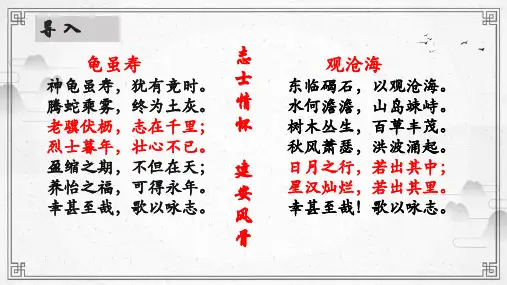 导入
龟虽寿
神龟虽寿，犹有竟时。
腾蛇乘雾，终为土灰。
老骥伏枥，志在千里；
烈士暮年，壮心不已。
盈缩之期，不但在天；
养怡之福，可得永年。
幸甚至哉，歌以咏志。
志士情怀
建安风骨
观沧海
东临碣石，以观沧海。
水何澹澹，山岛竦峙。
树木丛生，百草丰茂。
秋风萧瑟，洪波涌起。
日月之行，若出其中；
星汉灿烂，若出其里。
幸甚至哉！歌以咏志。